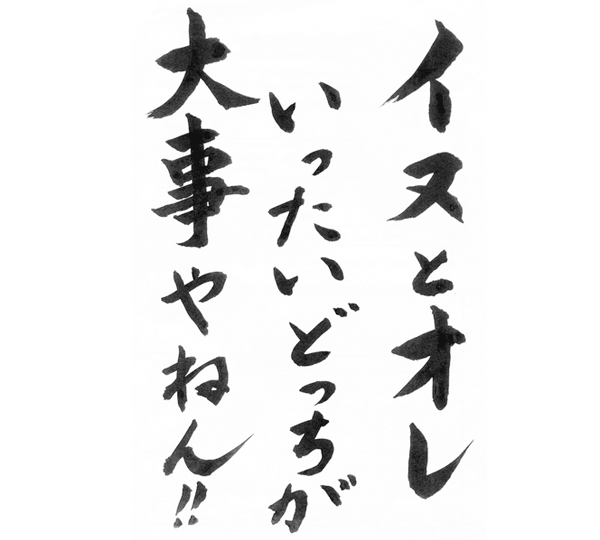 イヌとオレ
いったいどっちが
大事やねん!!